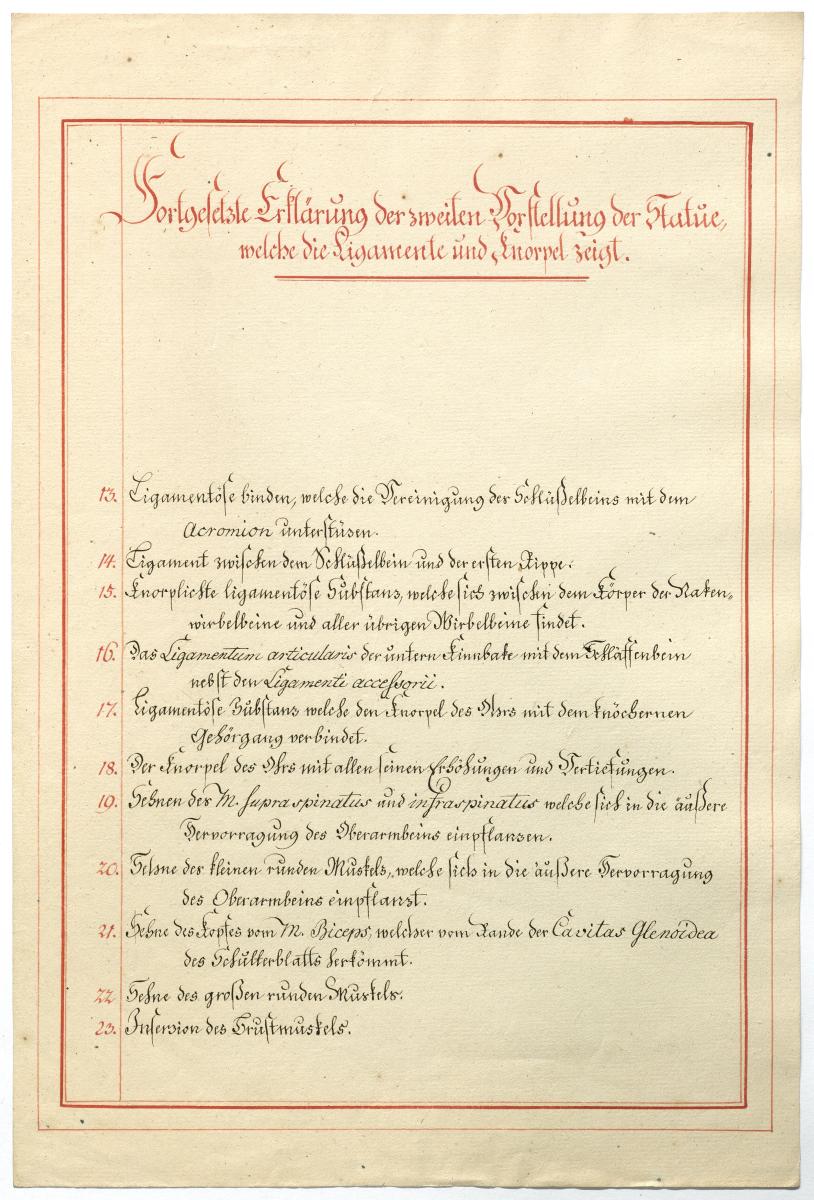 Fortgesetzte Erklärung der zweiten Vorstellung der Statue,
welche die Ligamente und Knorpel zeigt.
13. Ligamentöse binden, welche die Vereinigung der Schlüßelbeins mit dem
Acromion unterstüzen.
14. Ligament zwischen dem Schlüßelbein und der ersten Rippe.
15. Knorplichte ligamentöse Substanz, welche sich zwischen dem Körper der Naken-
wirbelbeine und aller übrigen Wirbelbeine findet.
16. Das Ligamentum articularis der untern Kinnbake mit dem Schläffenbein
nebst den Ligamenti accessorii.
17. Ligamentöse Substanz welche den Knorpel des Ohrs mit dem knöchernen
Gehörgang verbindet.
18. Der Knorpel des Ohrs mit allen seinen Erhöhungen und Vertiefungen.
19. Sehnen des M. supraspinatus und infraspinatus welche sich in die äußere
Hervorragung des Oberarmbeins einpflanzen.
20. Sehne des kleinen runden Muskels, welche sich in die äußere Hervorragung
des Oberarmbeins einpflanzt.
21. Sehne des Kopfes vom M. Biceps, welcher vom Rande der Cavitas Glenoidea
des Schulterblatts herkömmt.
22 Sehne des großen runden Muskels.
23. Insersion des Brustmuskels.